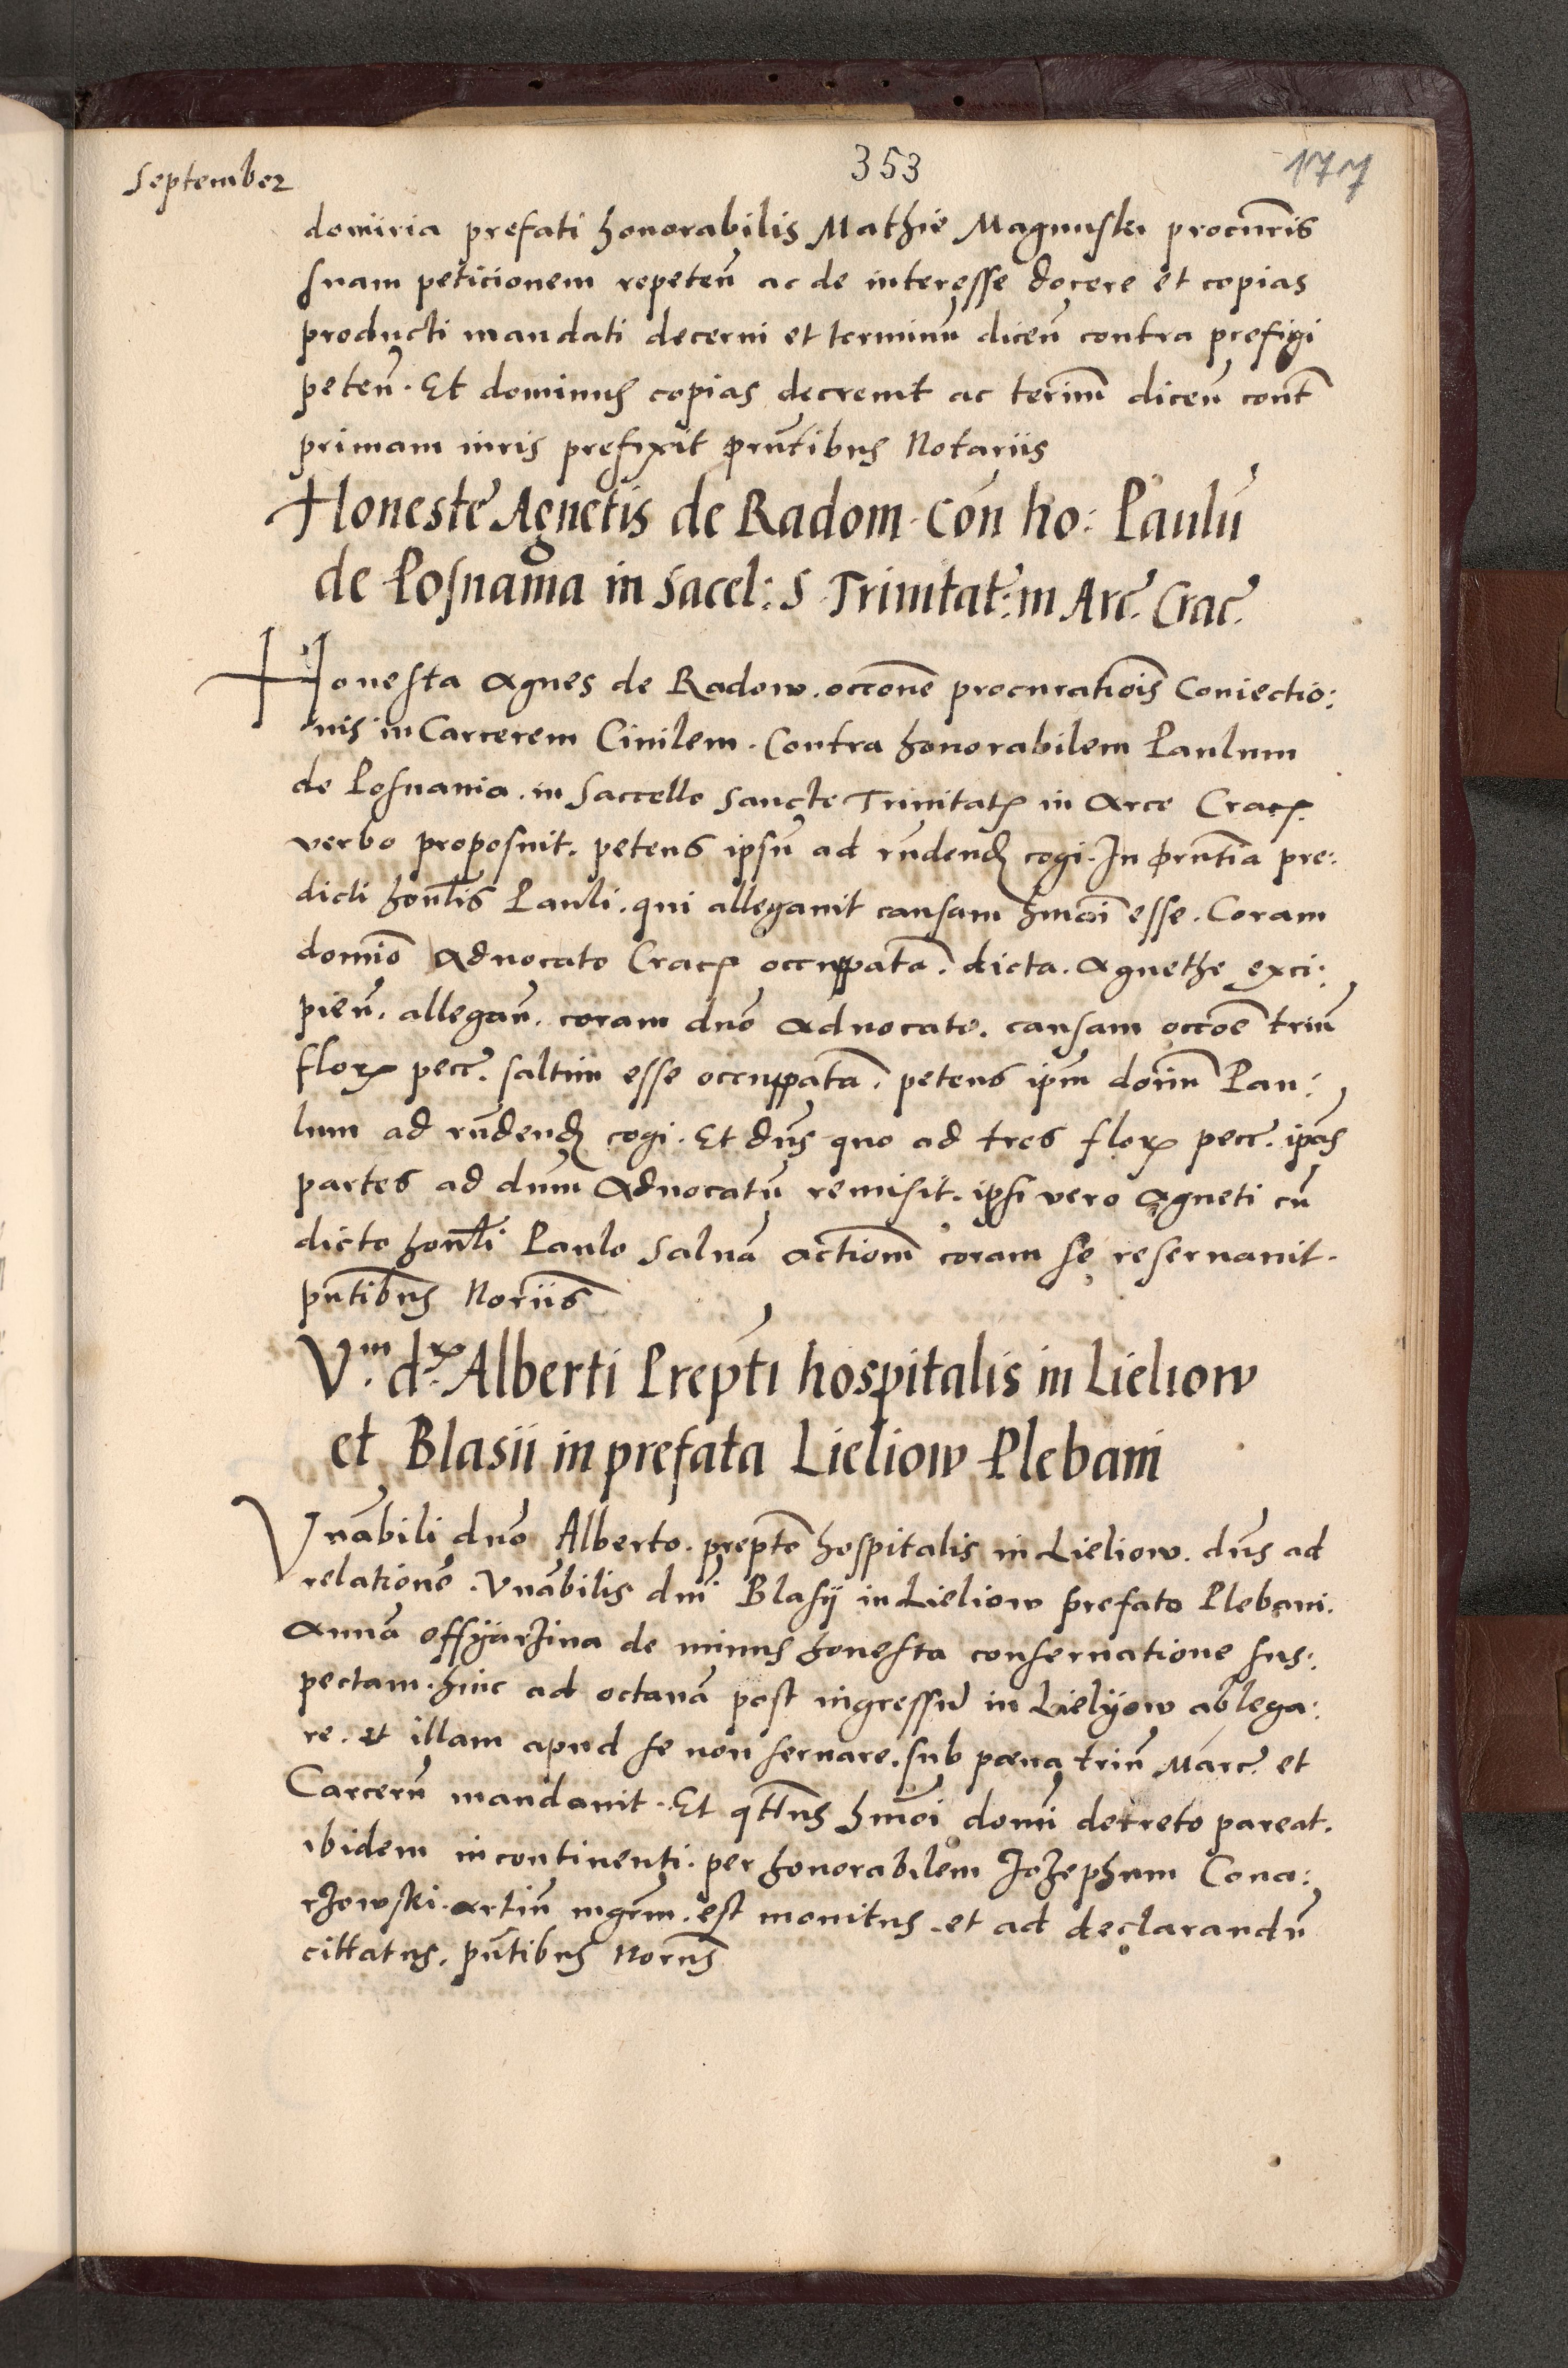 September
353
177
domiria prefati honorabilis Mathie Magnuski procur̃ris
suam peticionem repeteñ ac de interesse docere et copias
producti mandati decerni et terminũ diceñ contra prefigi
peteñ. Et dominus copias decrevit ac terim̃ diceñ cont̃
primam iuris prefixit prñtibus Notariis
Honeste Agnetis de Radom Coñ ho: Paulũ
de Posnania in Sacel: S Trinitat: in Arc̃. Crac̃.
Honesta Agnes de Radom. occone procurationis Coniectio:
nis in Carcerem Civilem. Contra honorabilem Paulum
de Posnania. in Saccello Sancte Trinitatis in Arce Crac.
verbo proposuit. petens ipsũ ad rñdend cogi. In prñtia pre:
dicti honĩlis Pauli. qui allegavit causam hmõi esse. Coram
domiõ Advocato Crac occuppatã. dicta. Agnethe exci:
pieñ. allegañ. coram dño Advocato. causam occõe triũ
flor pecc̃. saltim esse occuppatã. petens ipm̃ dom̃ Pau:
lum ad rñdend cogi. Et dñs quo ad tres flor pecc̃. ipãs
partes ad dñum Advocatũ remisit. ipsi vero Agneti cũ
dicto honl̃i Paulo Salvã actionẽ coram se reservavit.
pñtibus Noriis
V.m d. Alberti Prepti hospitalis in Lieliow
et Blasii in prefata Lieliow Plebani
Vnãbili dño Alberto. preptõ hospitalis in Lieliow. dñs ad
relationẽ. Vnãbilis dñi Blasÿ in Lieliow prefato Plebani.
Annã offÿarzina de minus honesta conservatione sus:
pectam. hinc ad octavã post ingressũ in Lielÿow ablega:
re. et illam apud se non servare. sub pœna triũ Marc̃. et
Carcerũ mandavit. Et qtt̃us hmõi domi decreto pareat.
ibidem incontinenti. per honorabilem Jozephum Cona:
rzowski. artiũ mgr̃m. est monitus. et ad declarandũ
cittatus. pñtibus Norius